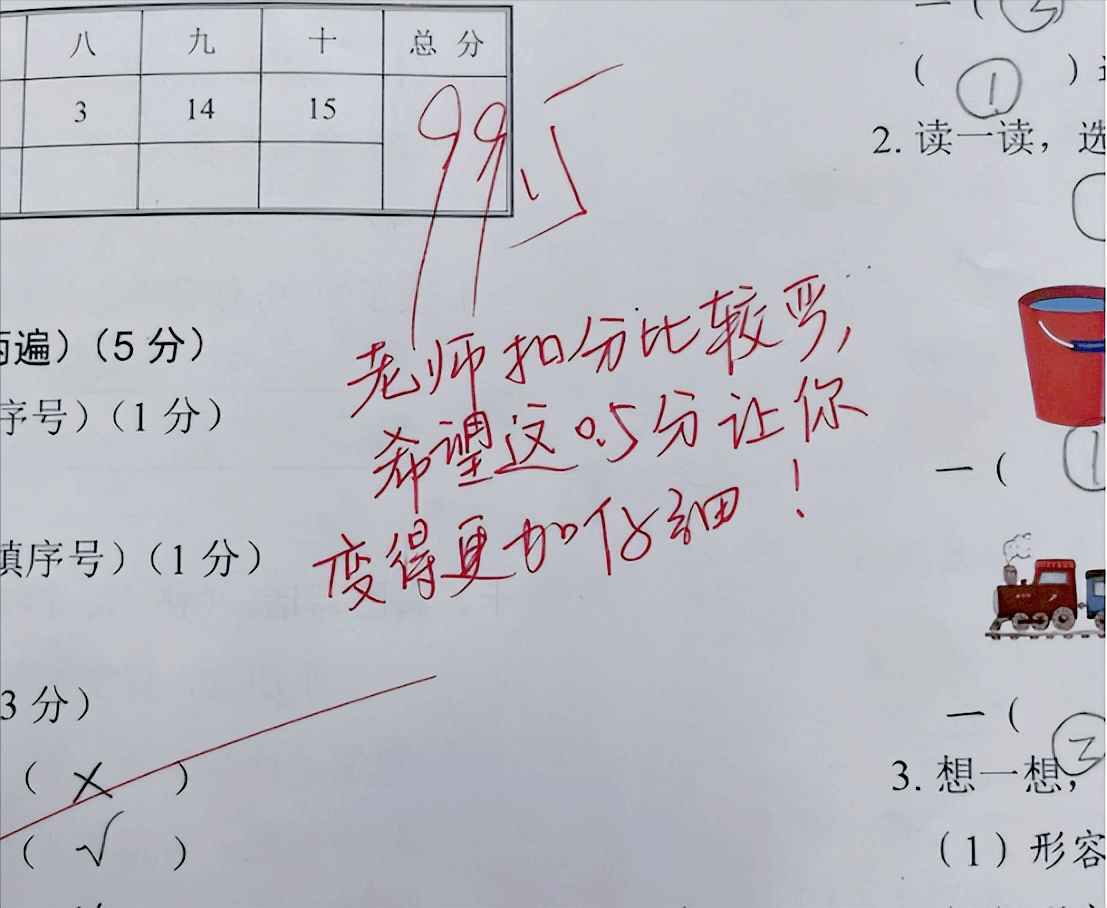 八 九 十 总 分
3 14 15
99.5
老师扣分比较严,
希望这0.5分让你
变得更加仔细!
遍)(5分)
序号)(1分)
填序号)(1分)
3分)
( × )
( √ )
一( ③
( ① )
2. 读一读,选
一( ①
一( ②
3. 想一想,
(1)形容